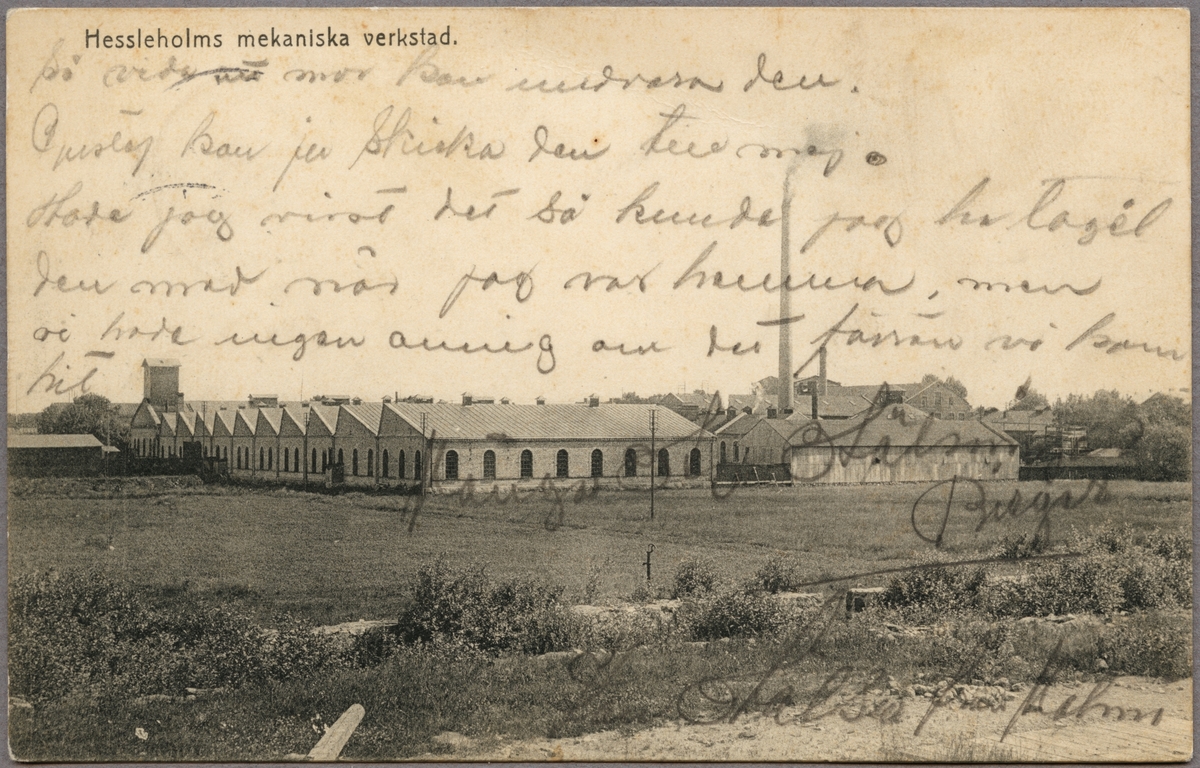 Hessleholms mekaniska verkstad.
Så mor kan undvara den.
Gustaf kan ju Skicka den till mej.
Hade jag visst det så kunde jag ha tagit
den med när jag var hemma, men
vi hade ingen aning om det förrän vi kom
hit
Många
Birger
Hälsa från